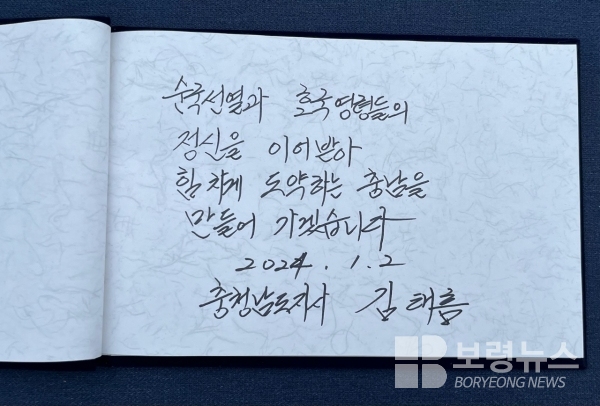 순국선열과 호국영령들의
정신을 이어받아
힘차게 도약하는 충남을
만들어 가겠습니다
2024. 1. 2
충청남도지사 김태흠
보령뉴스
BORYEONG NEWS